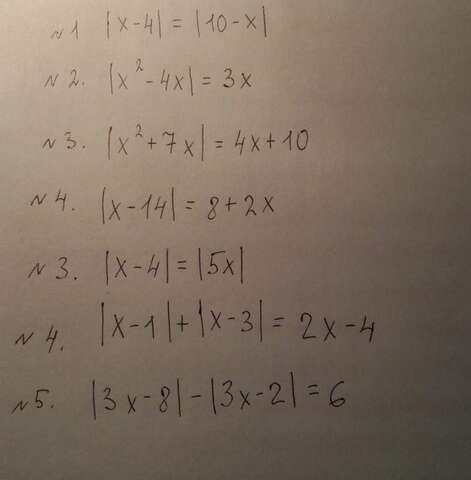 №1 |x-4| = |10-x|
№2. |x²-4x| = 3x
№3. |x²+7x| = 4x+10
№4. |x-14| = 8+2x
№3. |x-4| = |5x|
№4. |x-1|+|x-3| = 2x-4
№5. |3x-8|-|3x-2| = 6